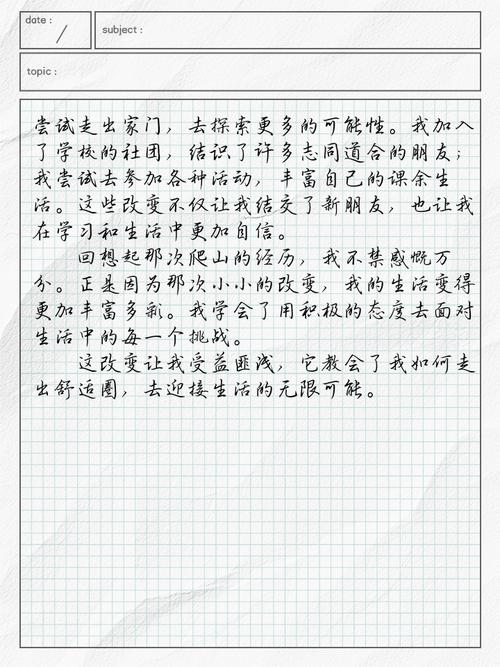 date :
subject :
topic :
尝试走出家门，去探索更多的可能性。我加入
了学校的社团，结识了许多志同道合的朋友；
我尝试去参加各种活动，丰富自己的课余生
活。这些改变不仅让我结交了新朋友，也让我
在学习和生活中更加自信。
回想起那次爬山的经历，我不禁感慨万
分。正是因为那次小小的改变，我的生活变得
更加丰富多彩。我学会了用积极的态度去面对
生活中的每一个挑战。
这改变让我受益匪浅，它教会了我如何走
出舒适圈，去迎接生活的无限可能。